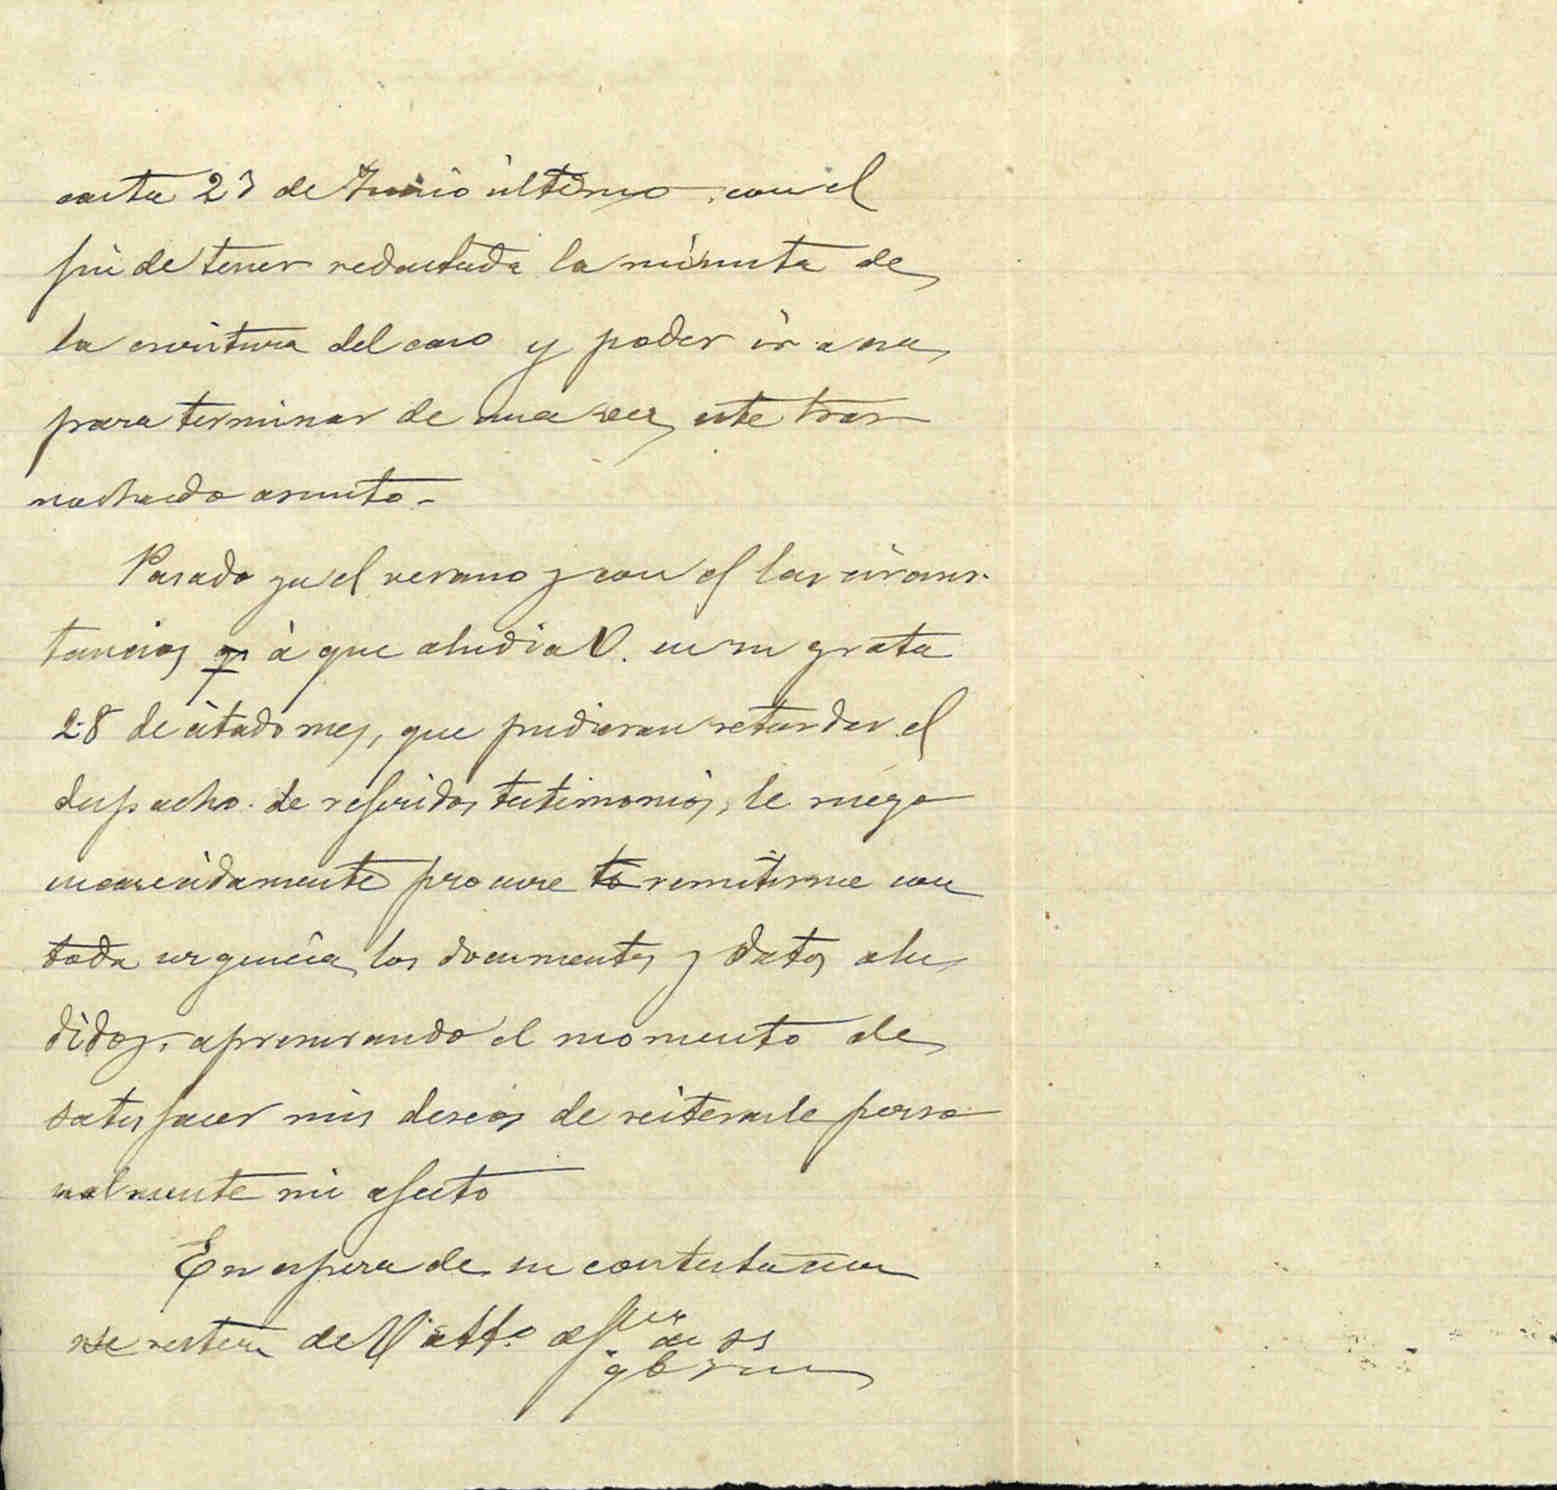 carta 23 de Junio último, con el
fin de tener redactada la minuta de
la escritura del caso y poder ir a esa,
para terminar de una vez este tras
nochado asunto.-
Pasado ya el verano y con el las circuns-
tancias q. à que aludia V. en su grata
28 de citado mes, que pudieran retardar el
despacho de referidos testimonios, le ruego
encarecidamente procure to remitirme con
toda urgencia los documentos y datos alu
didos, apresurando el momento de
satisfacer mis deseos de reiterarle perso
nalmente mi afecto
En espera de su contestacion
se reitera de V. atto. af ss
q b s m